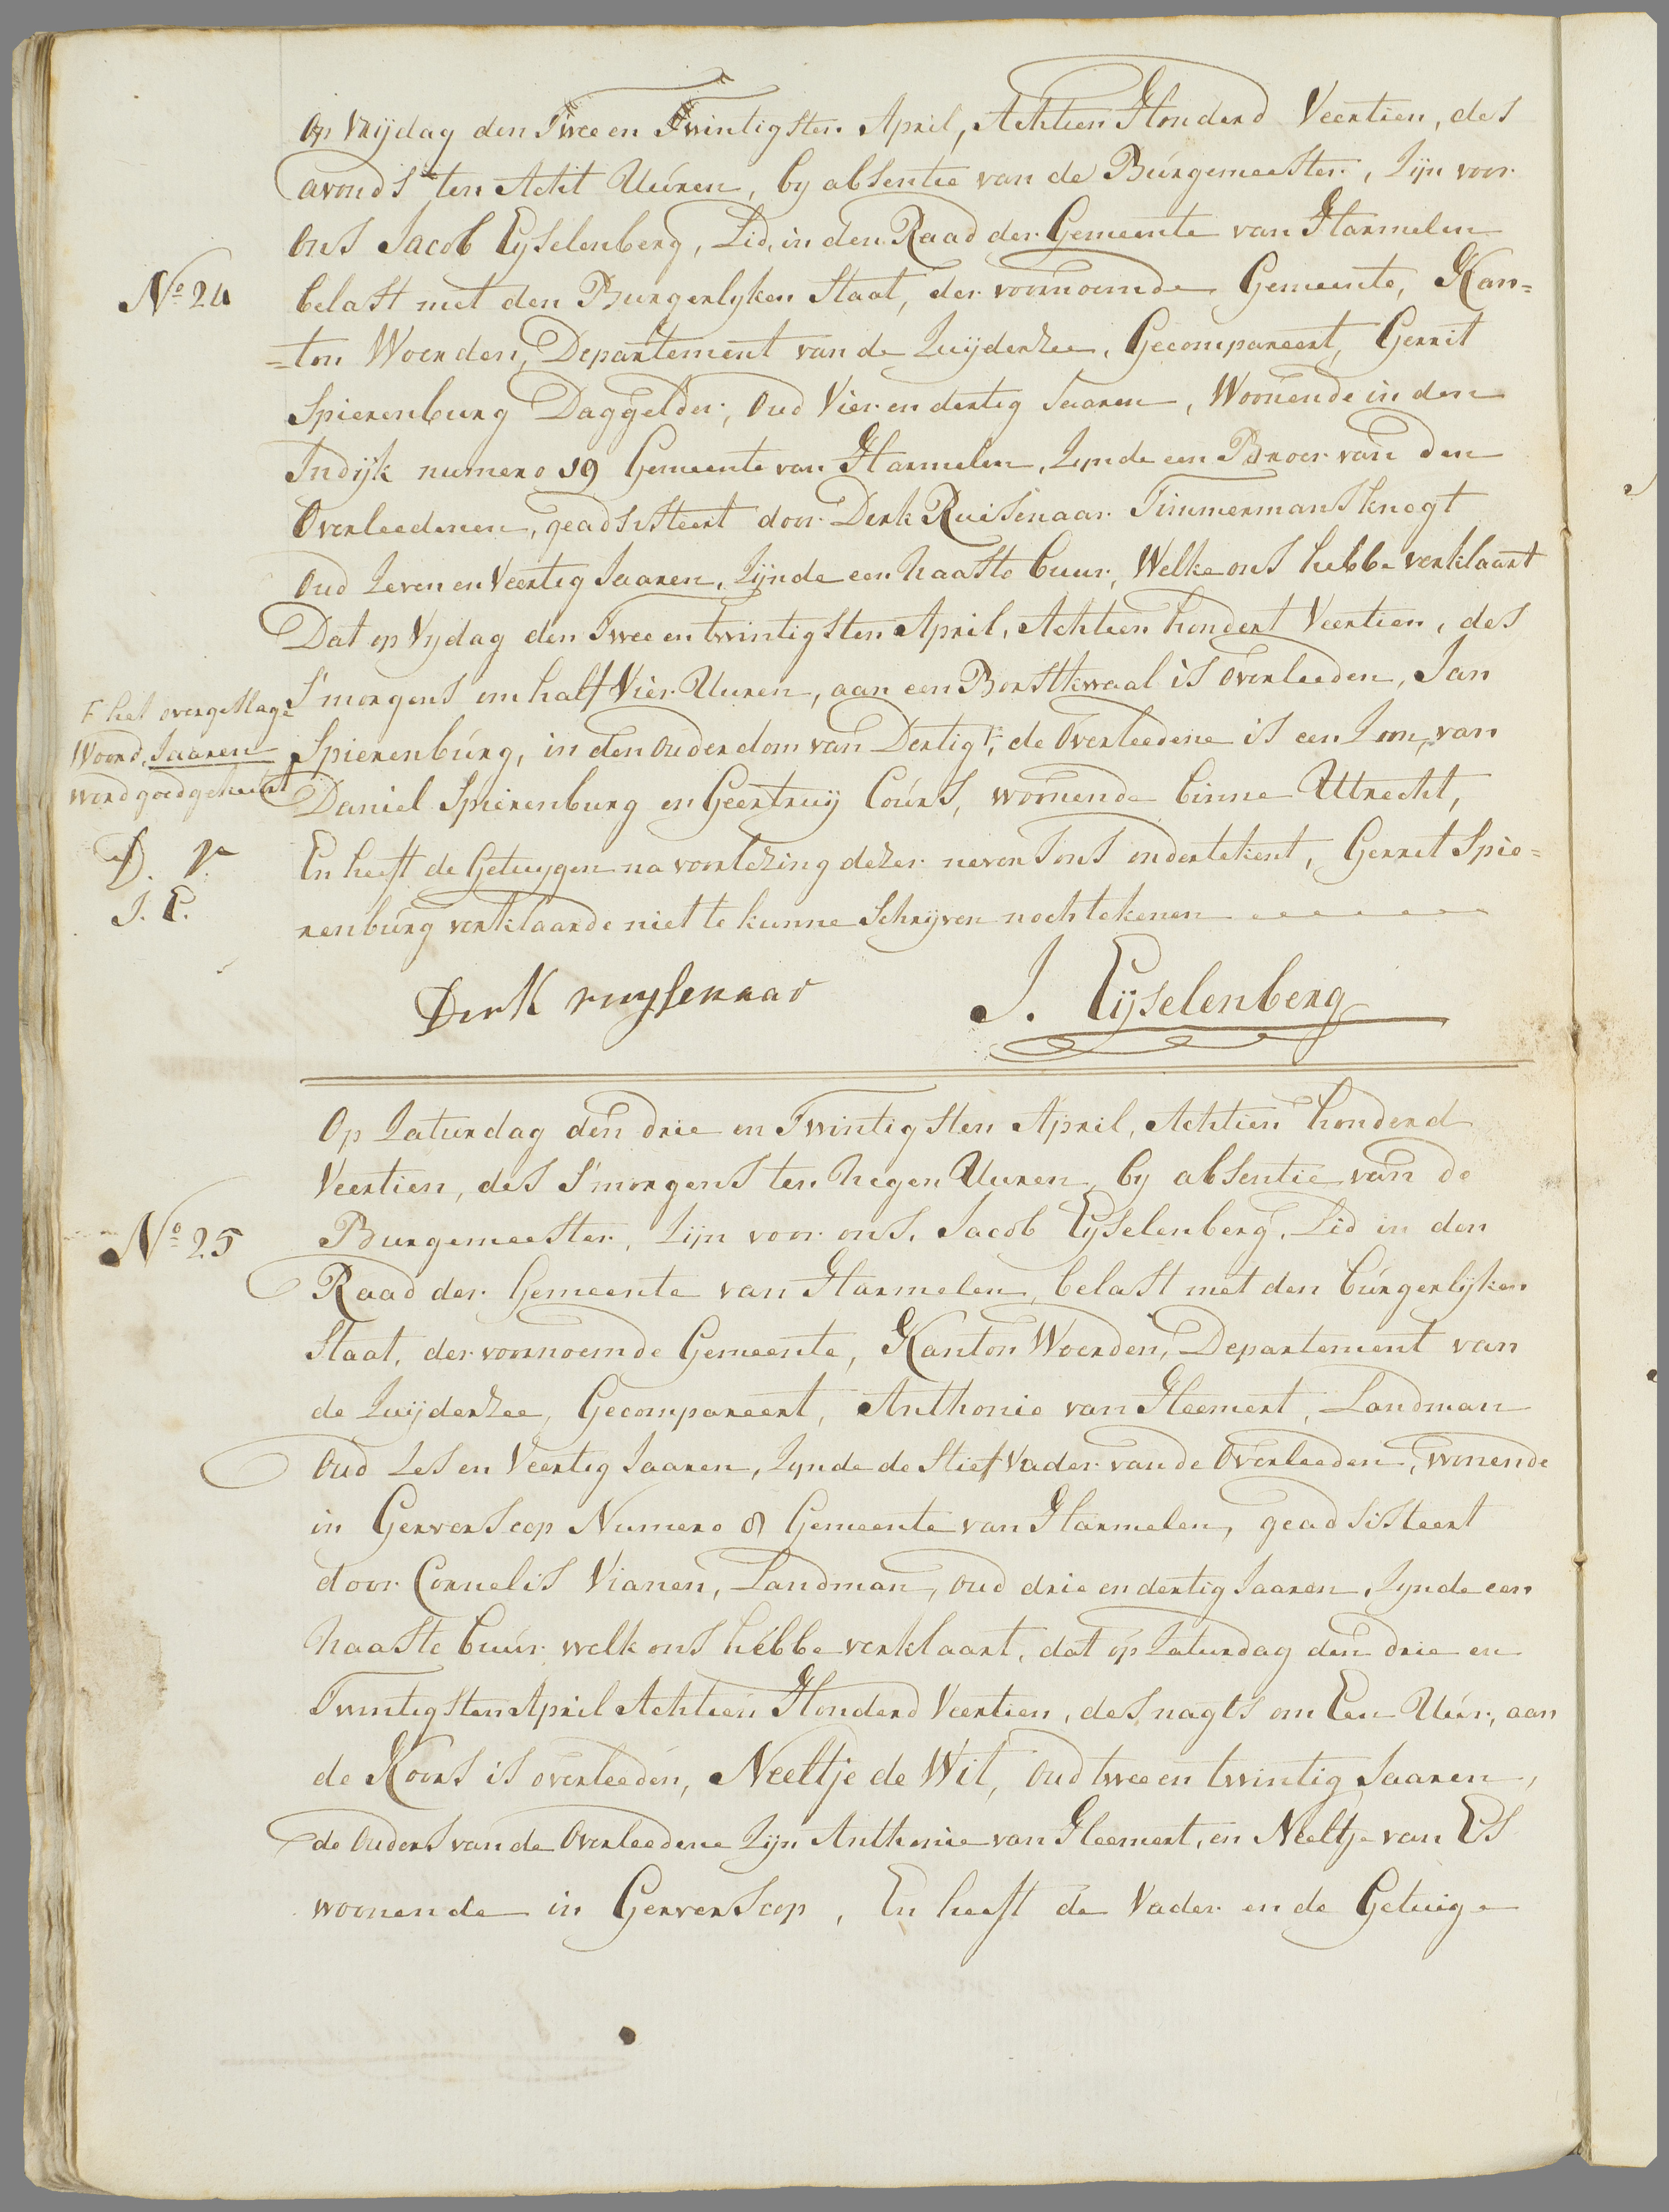 Op Vrijdag den Twee en Twintigsten April, Achtien Honderd Veertien, des
avonds ten Acht Uúren, by absentie van de Búrgemeester, Zijn voor
ons Jacob Eyselenberg, Lid, in den Raad der Gemeente van Harmelen
No 24
belast met den Burgerlyken Staat, der voornoemde Gemeente, Kan=
=ton Woerden, Departement van de Zuijderzee, Gecompareert, Gerrit
Spierenburg Daggelder, Oud Vier en dertig Jaaren, Woonende in den
Indijk numero 19 Gemeente van Harmelen, Zynde een Broer van den
Overleedenen, geadsisteert door Derk Ruisenaar Timmermans knegt
Oud Zeven en Veertig Jaaren, Zijnde een Naaste buur, Welke ons hebbe verklaart
Dat op Vydag den Twee en twintigsten April, Achtien hondert Veertien, des
S'morgens om half Vier Uuren, aan een Borstkwaal is overleeden, Jan
F het overgeslage
Woord, Jaaren
word goedgekeurt
D. r.
J. E.
Spierenbúrg, in den ouderdom van Dertig F, de Overleedene is een Zoon, van
Daniel Spierenburg en Geertruy Coúrs, woonende binne Uttrecht,
En heeft de Getuygen na voorlezing dezer nevens ons ondertekent, Gerret Spie=
renbúrg verklaarde niet te kunne Schryven noch tekenen
Derk ruysenaar
J. Eijselenberg
Op Zaturdag den drie en Twintigsten April, Achtien honderd
Veertien, des S'morgens ten Negen Uuren, by absentie van de
No 25
Burgemeester, Zijn voor ons, Jacob Eyselenberg, Lid in den
Raad der Gemeente van Harmelen, belast met den búrgerlyken
Staat, der voornoemde Gemeente, Kanton Woerden, Departement van
de Zuijderzee, Gecompareert, Anthonie van Heemert, Landman
Oud Zes en Veertig Jaaren, Zynde de Stief Vader van de Overleeden, wonende
in Gerverscop Numero 8 Gemeente van Harmelen, geadsisteert
door Cornelis Vianen, Landman, oud drie en dertig Jaaren, Zynde een
Naaste buúr welk ons hebbe verklaart, dat op Zaturdag den drie en
Twintigsten April Achtien Honderd Veertien, des nagts om Een Uúr, aan
de Koors is overleeden, Neeltje de Wit, Oud twee en twintig Jaaren,
de Ouders van de Overleedene Zijn Anthonie van Heemert, en Neeltje van Es
woonende in Gerverscop, En heeft de Vader en de Getuige